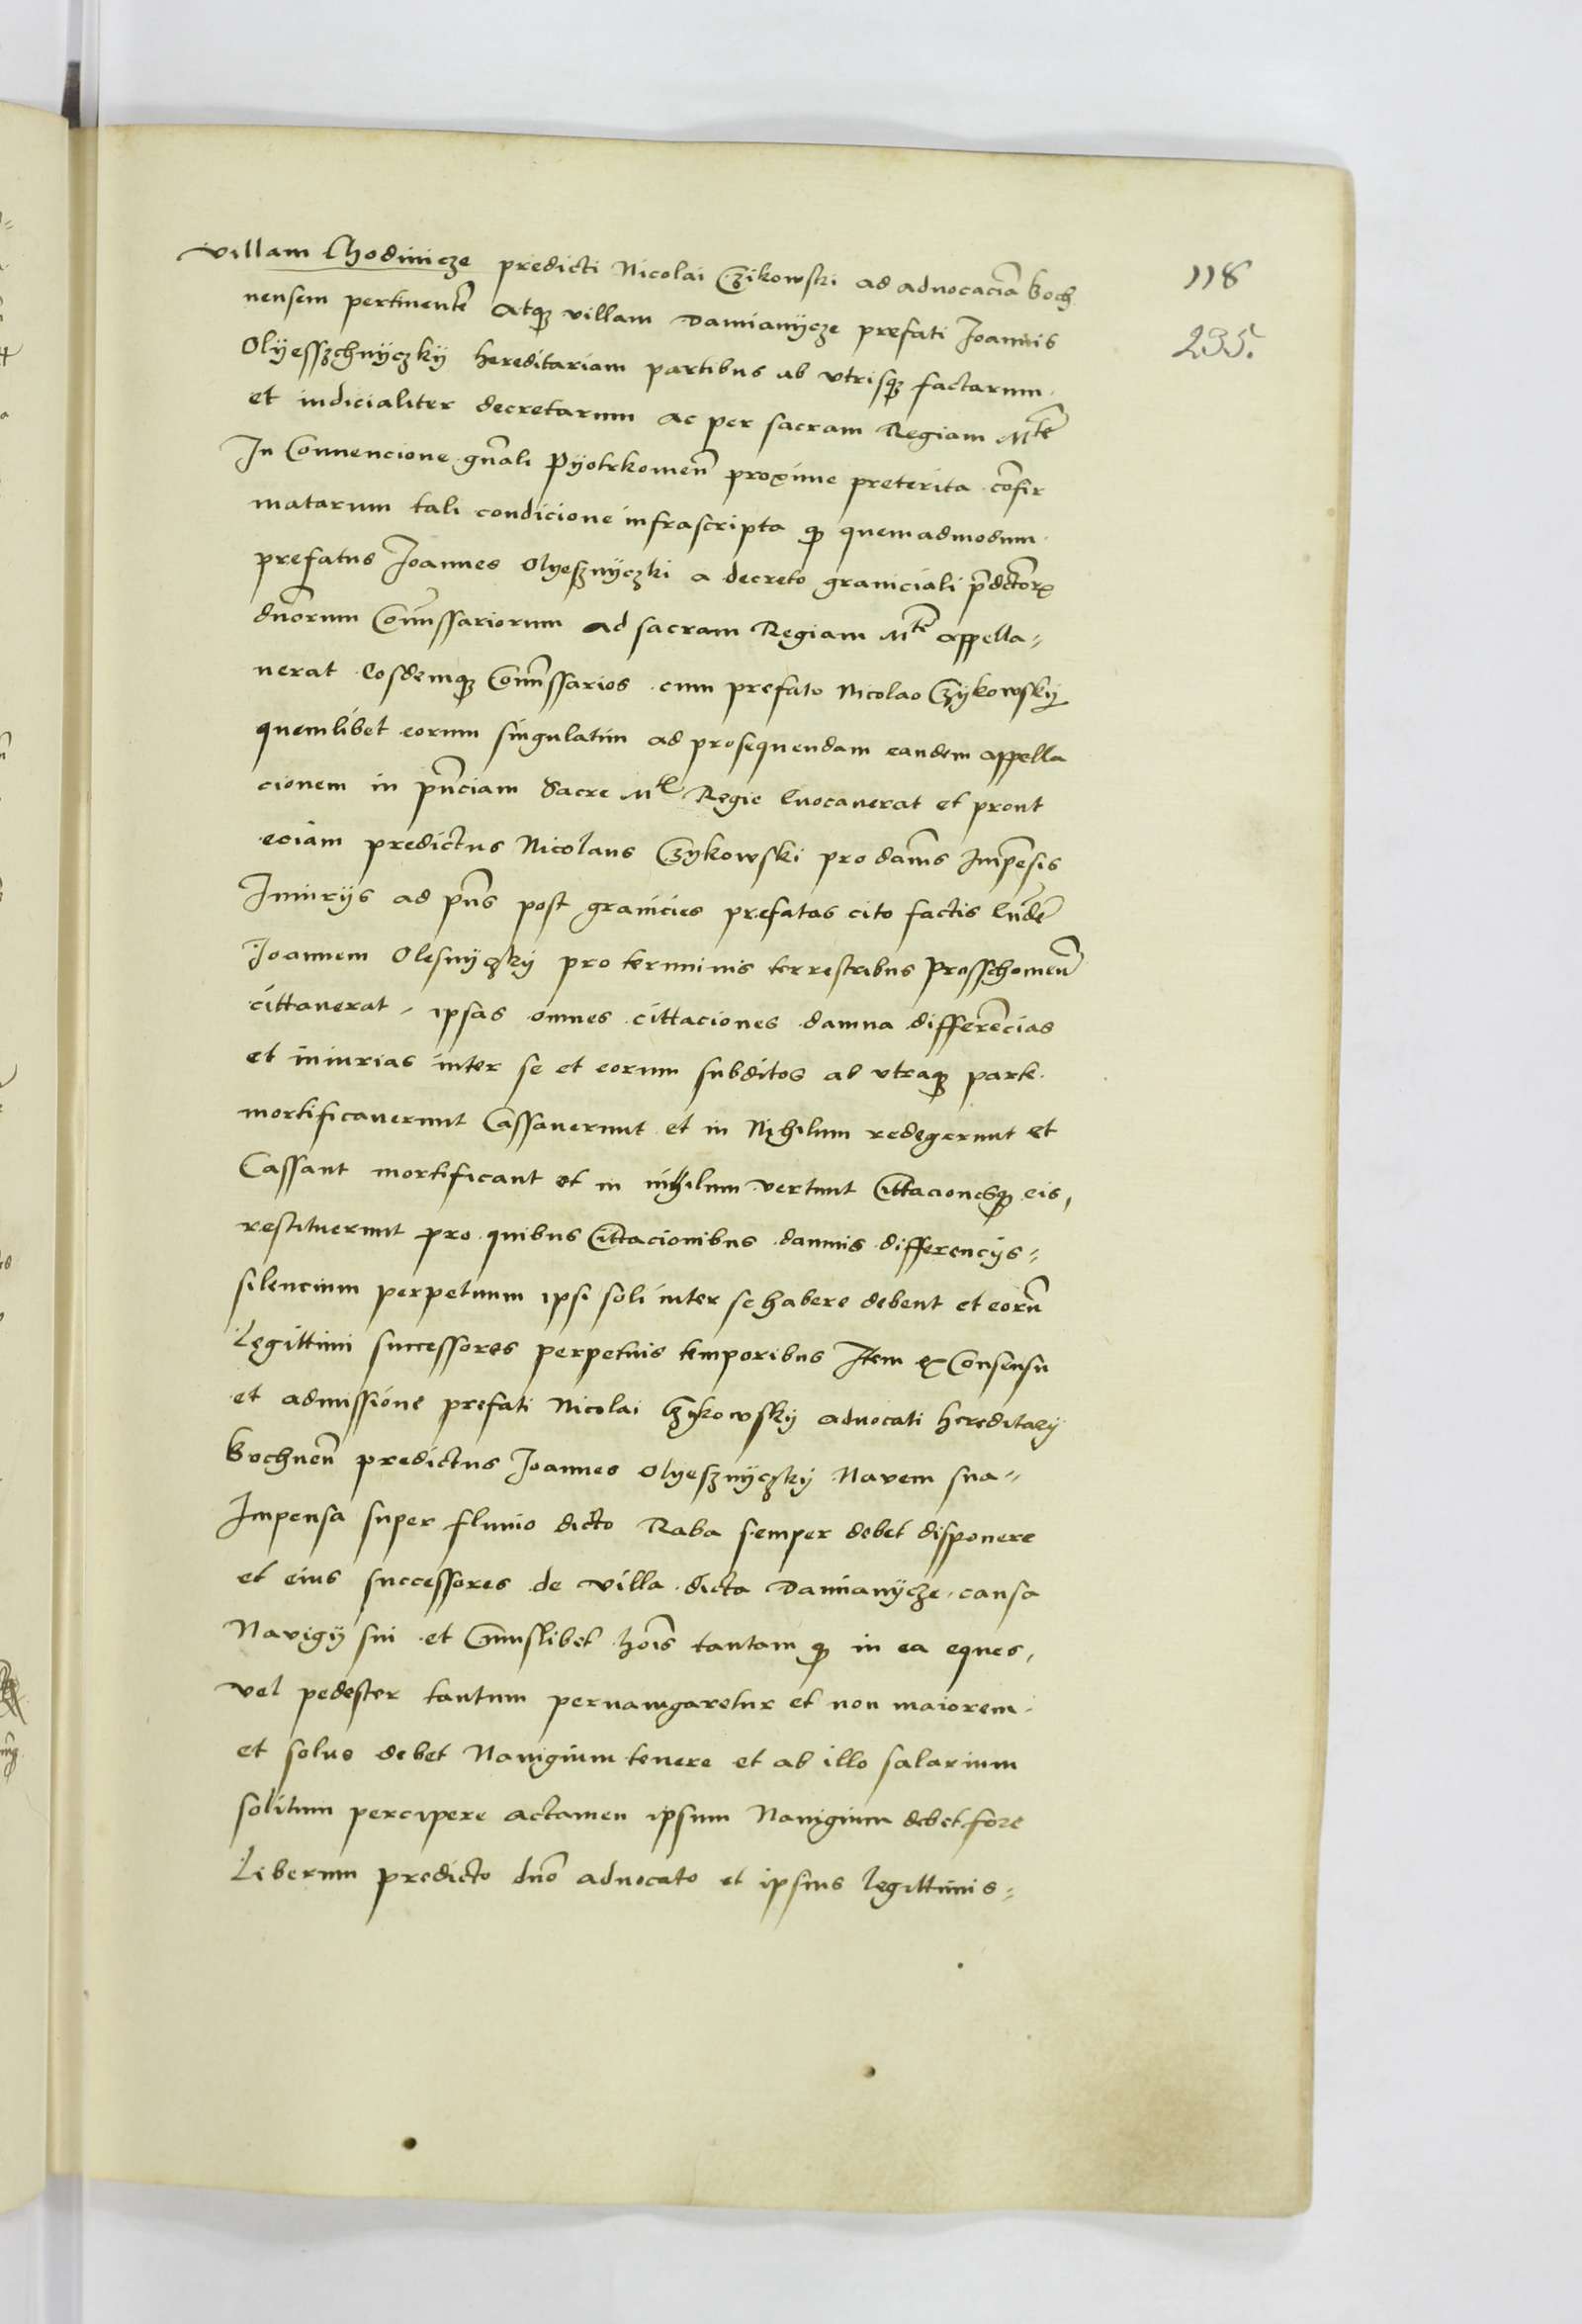 villam Chodinicze predicti Nicolai Czikowski ad advocaciā Boch
118
nensem pertinentē Atqȝ villam Damianÿcze prefati Joannis
235.
Olÿesszchnÿczkÿ hereditariam partibus ab vtrisqȝ factarum
et iudicialiter decretarum ac per sacram Regiam Mtē
In Conuencione gn̄ali Pÿotrkouien̄ proxime preterita cōfir
matarum tali condicione infrascripta qȝ quemadmodum
prefatus Joannes Olyesznÿczki a decreto graniciali p̄dictorꝝ
dn̄orum Com̄issariorum ad sacram Regiam Mtē appella=
uerat Eosdemqȝ Com̄issarios cum prefato Nicolao Czÿkowskÿ
quemlibet eorum singulatim ad prosequendam eandem appella
cionem in pn̄ciam Sacre Mtis Regie Euocauerat et prout
eciam predictus Nicolaus Czykowski pro dam̄s Impēsis
Iniurÿs ad pn̄s post granicies prefatas cito factis Eundē
Joannem Olesnÿczkÿ pro terminis terrestribus Prosschouien̄
cittauerat, ipsas omnes cittaciones damna differēcias
et iniurias inter se et eorum subditos ab vtraqȝ parte
mortificauerunt Cassauerunt et in Nihilum redegerunt et
Cassant mortificant et in nihilum vertunt Cittacionesqȝ eis,
restituerunt pro quibus Cittacionibus damnis differencÿs=
silencium perpetuum ipsi soli inter se habere debent et eorū
Legittimi successores perpetuis temporibus Item ex Consensu
et admissione prefati Nicolai Czykowskÿ advocati hereditarÿ
Bochnen̄ predictus Joannes Olyesznÿczkÿ Navem sua=
Impensa super fluuio dicto Raba semper debet disponere
et eius successores de villa dicta Damianÿcze causa
Navigÿ sui et Cuiuslibet hoīs tantam qȝ in ea eques,
vel pedester tantum pernauigaretur et non maiorem
et solus debet Nauigium tenere et ab illo salarium
solitum percipere actamen ipsum Nauigium debet fore
Liberum predicto dn̄o advocato et ipsius legittimis=